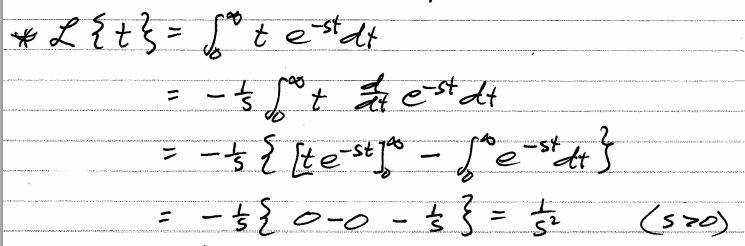 * ℒ{t} = ∫₀^∞ t e^{-st} dt
= -1/s ∫₀^∞ t d/dt e^{-st} dt
= -1/s { [t e^{-st}]₀^∞ - ∫₀^∞ e^{-st} dt }
= -1/s { 0-0 - 1/s } = 1/s² (s>0)